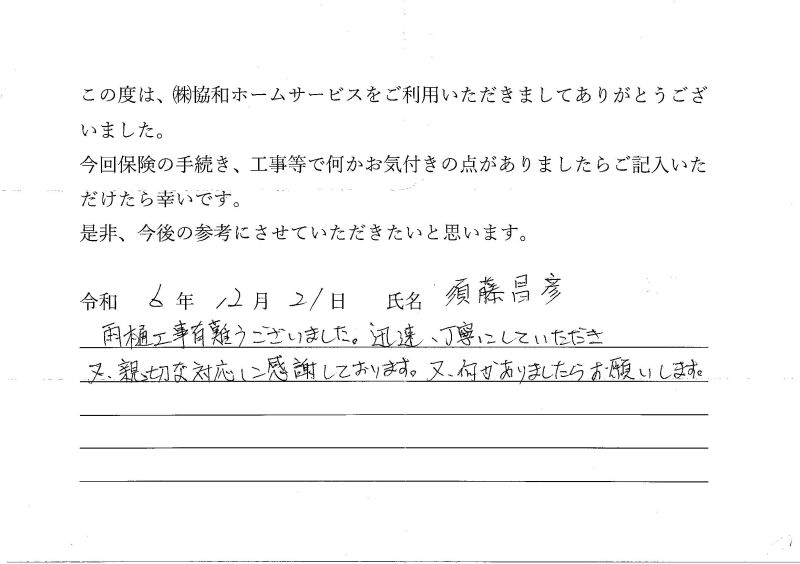 この度は、㈱協和ホームサービスをご利用いただきましてありがとうござ
いました。
今回保険の手続き、工事等で何かお気付きの点がありましたらご記入いた
だけたら幸いです。
是非、今後の参考にさせていただきたいと思います。
令和 6 年 12 月 21 日 氏名 須藤昌彦
雨樋工事有難うございました。迅速、丁寧にしていただき
又、親切な対応に感謝しております。又、何かありましたらお願いします。